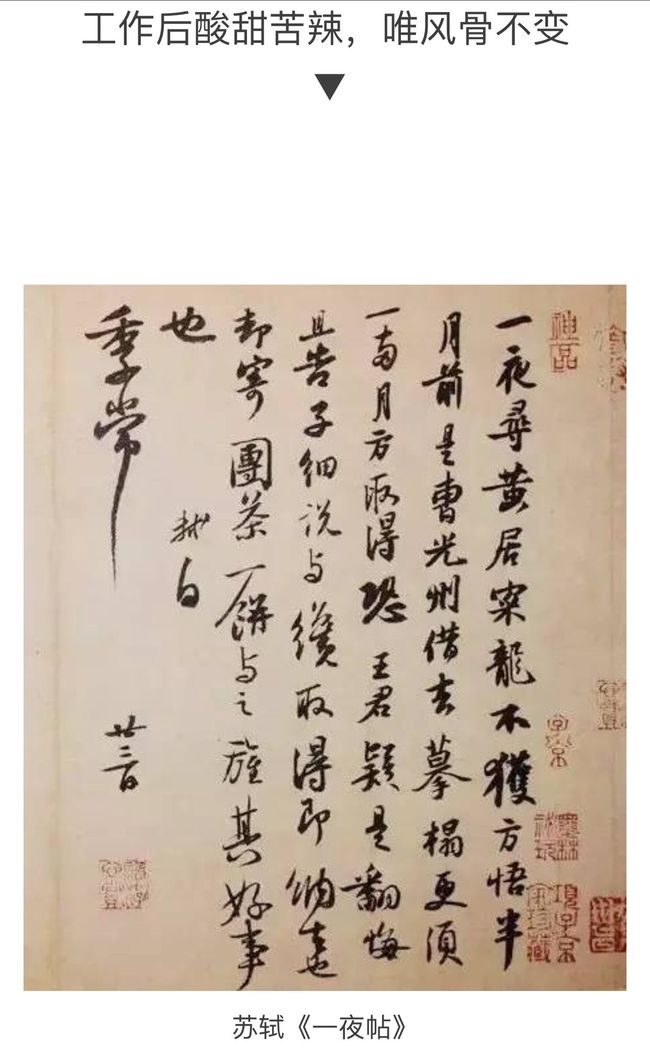 工作后酸甜苦辣，唯风骨不变
一夜尋黄居寀龍不獲方悟半
月前是曹光州借去摹榻更須
一兩月方取得恐王君疑是翻悔
且告子細説与纔取得即納去也
却寄團茶一餅与之旌其好事
也
軾白
季常
廿三日
神品
子京
項子京
家珍藏
苏轼《一夜帖》